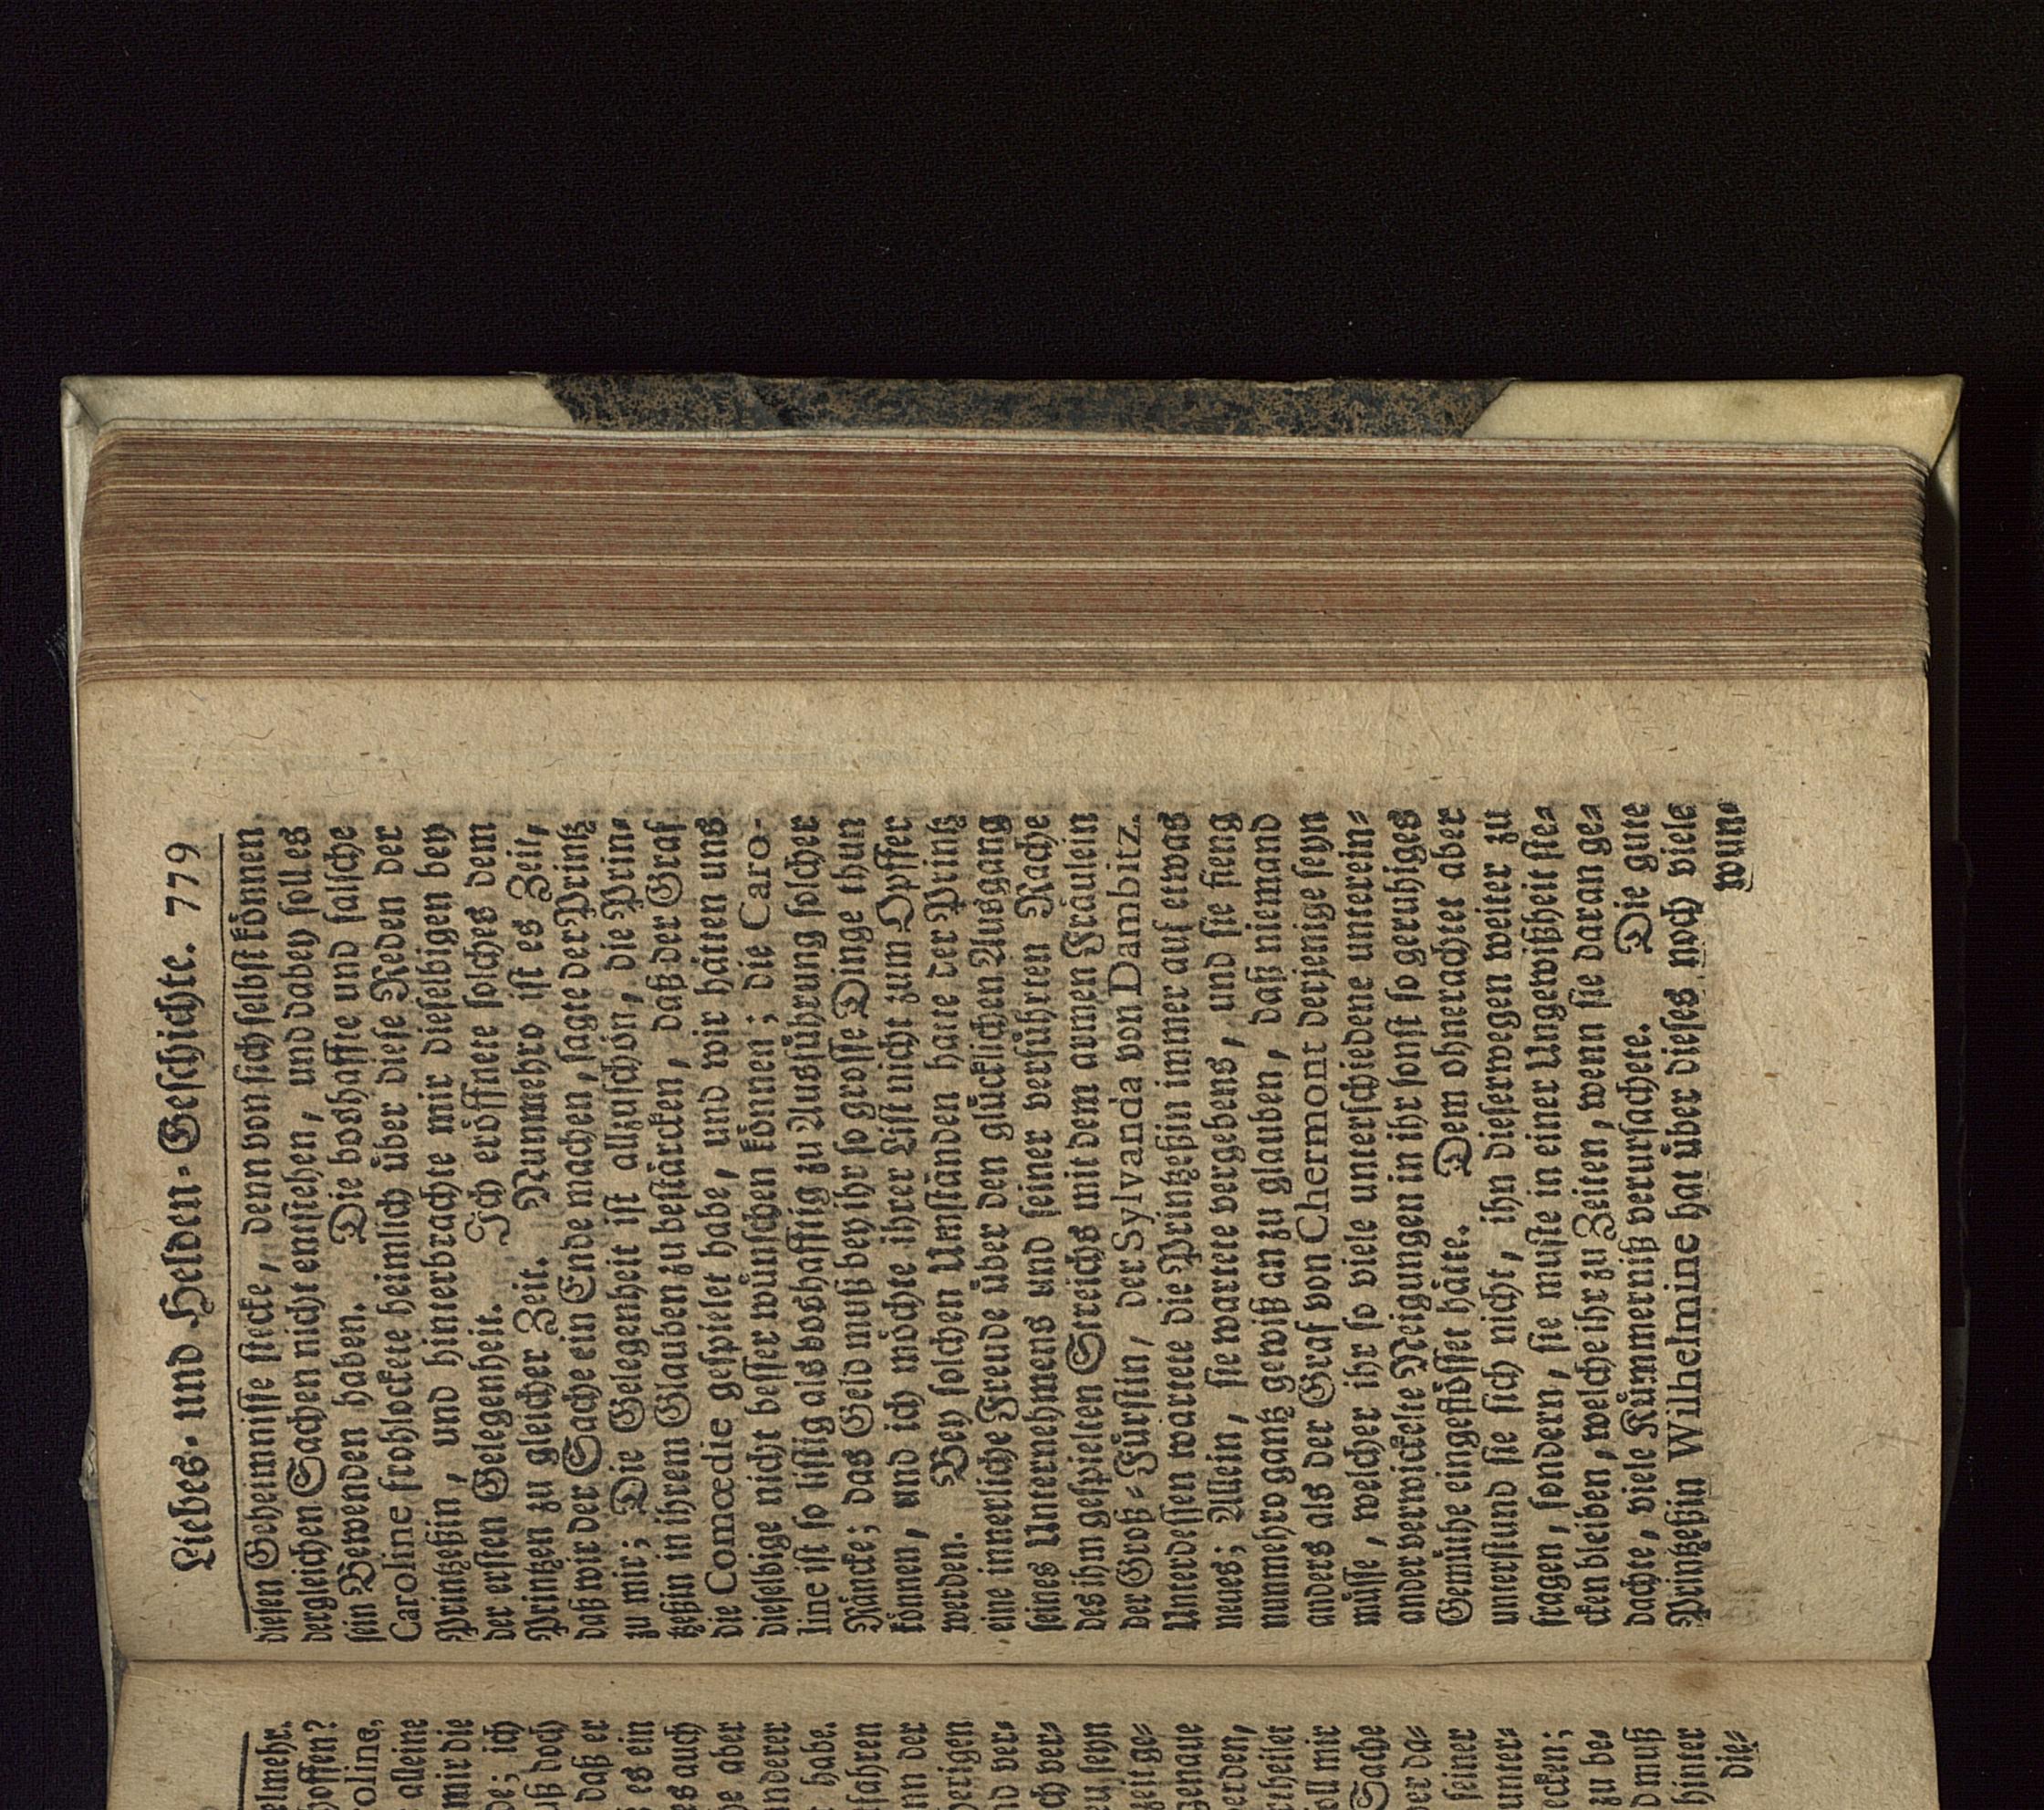 Liebes- und Helden-Geschichte. 779
diesen Geheimnisse stecke, denn von sich selbst können
dergleichen Sachen nicht entstehen, und dabey soll es
sein Bewenden haben. Die boshaffte und falsche
Caroline frohlockete heimlich über diese Reden der
Printzeßin, und hinterbrachte mir dieselbigen bey
der ersten Gelegenheit. Ich eröffnete solches dem
Printzen zu gleicher Zeit. Nunmehro ist es Zeit,
daß wir der Sache ein Ende machen, sagte der Printz
zu mir; Die Gelegenheit ist allzuschön, die Prin-
tzeßin in ihrem Glauben zu bestärcken, daß der Graf
die Comœdie gespielet habe, und wir hätten uns
dieselbige nicht besser wünschen können; die Caro-
line ist so listig als boshafftig zu Ausführung solcher
Räncke; das Geld muß bey ihr so grosse Dinge thun
können, und ich möchte ihrer List nicht zum Opffer
werden. Bey solchen Umständen hatte der Printz
eine innerliche Freude über den glücklichen Ausgang
seines Unternehmens und seiner verführten Rache
des ihm gespielten Streichs mit dem armen Fräulein
der Groß-Fürstin, der Sylvanda von Dambitz.
Unterdessen wartete die Printzeßin immer auf etwas
neues; Allein, sie wartete vergebens, und sie fieng
nunmehro gantz gewiß an zu glauben, daß niemand
anders als der Graf von Chermont derjenige seyn
müsse, welcher ihr so viele unterschiedene unterein-
ander verwickelte Neigungen in ihr sonst so geruhiges
Gemüthe eingeflösset hätte. Dem ohnerachtet aber
unterstund sie sich nicht, ihn dieserwegen weiter zu
fragen, sondern, sie muste in einer Ungewißheit ste-
cken bleiben, welche ihr zu Zeiten, wenn sie daran ge-
dachte, viele Kümmerniß verursachete. Die gute
Printzeßin Wilhelmine hat über dieses noch viele
wun-
elmehr.
hoffen?
roline,
alleine
mir die
de; ich
uß doch
daß er
es ein
es auch
he aber
anderer
habe.
nfahren
nn der
herigen
nd ver-
ch ver-
eu seyn
zeit ge-
genaue
erden,
rtheilet
oll mir
Sache
er da-
seiner
unter-
ecken;
zu be-
d muß
hinter
die-